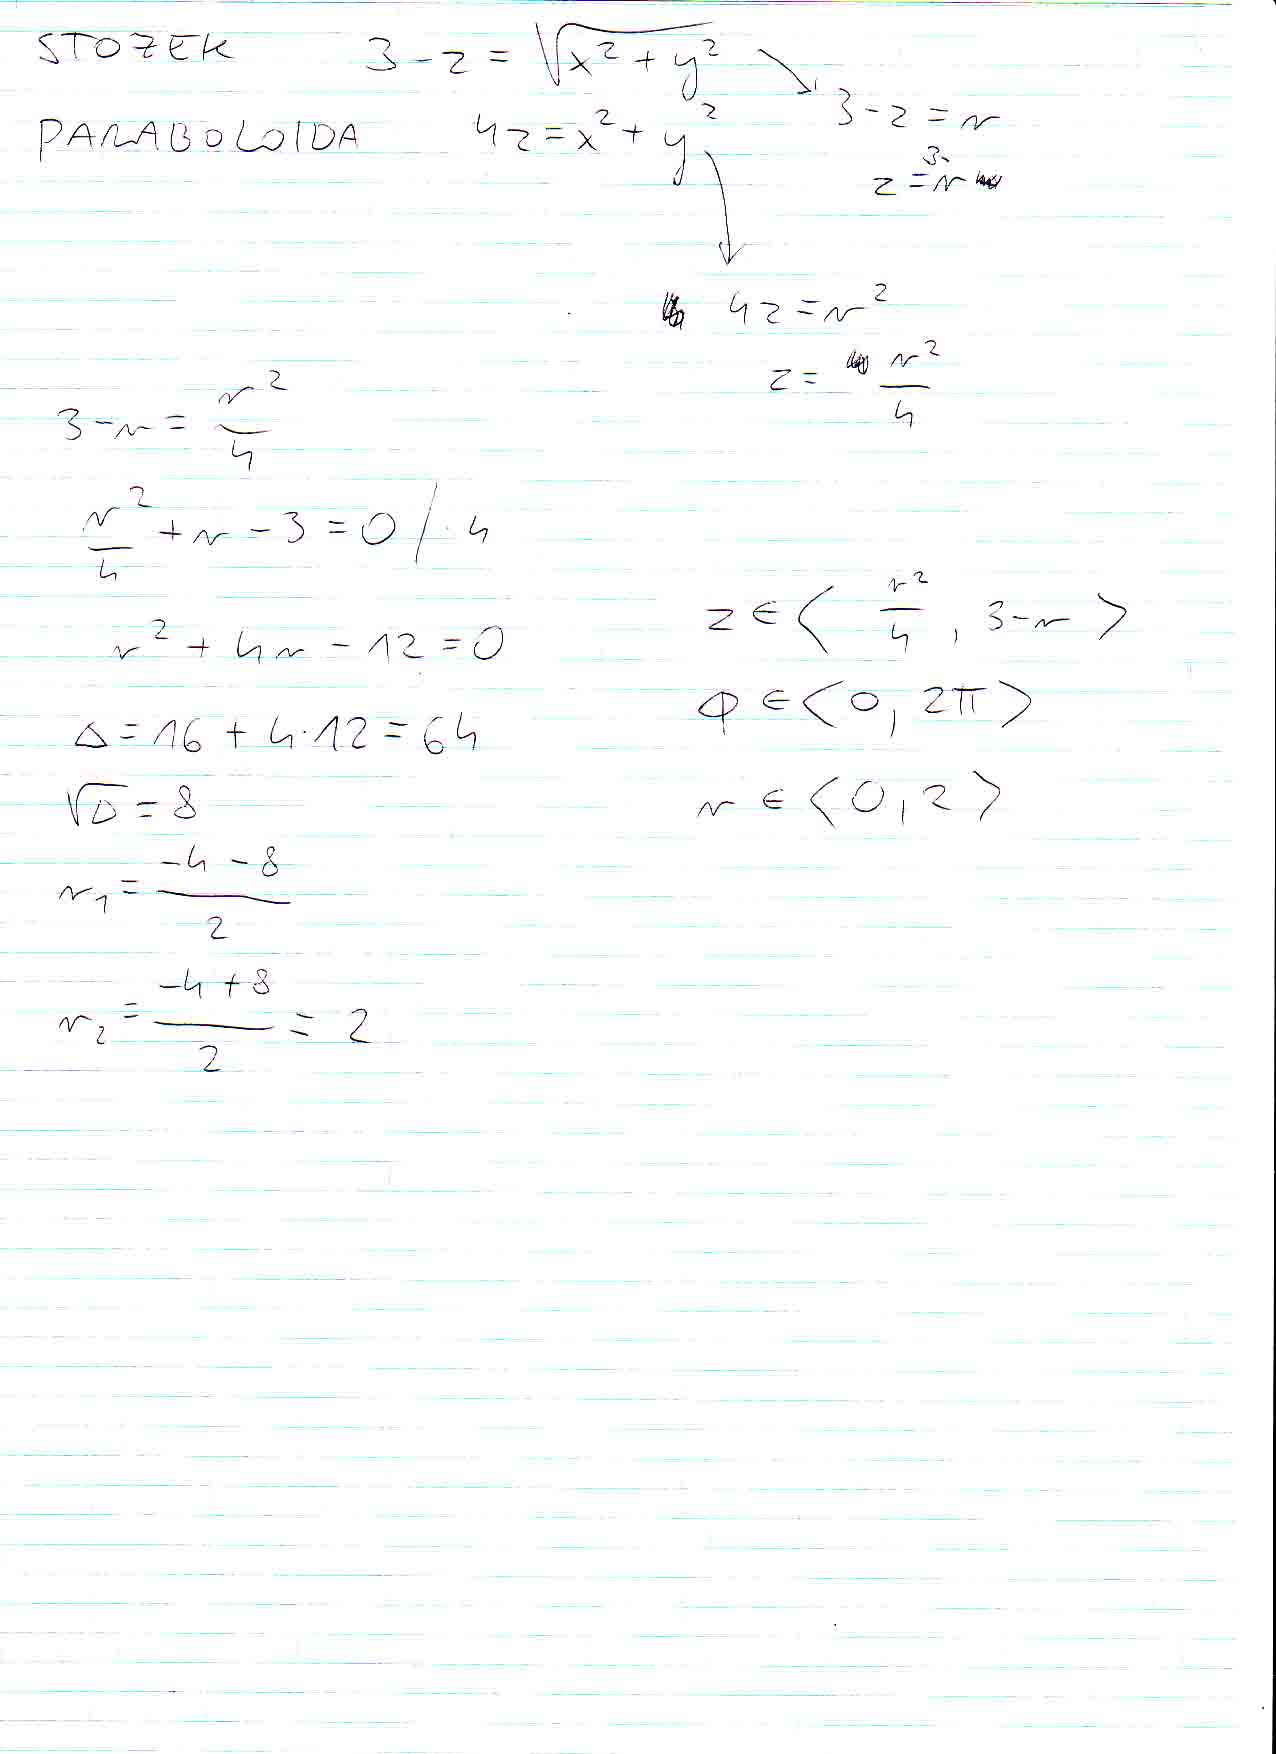 STOZEK 3-z = √x²+y²
3-z=r
PARABOLOIDA 4z=x²+y²
z=3-r
4z=r²
z= r²/4
3-r= r²/4
r²/4 +r-3=0 /·4
r²+4r-12=0
Δ=16+4·12=64
√Δ=8
r₁= -4-8/2
r₂= -4+8/2 = 2
z∈< r²/4, 3-r >
φ∈<0, 2π>
r∈<0, 2>